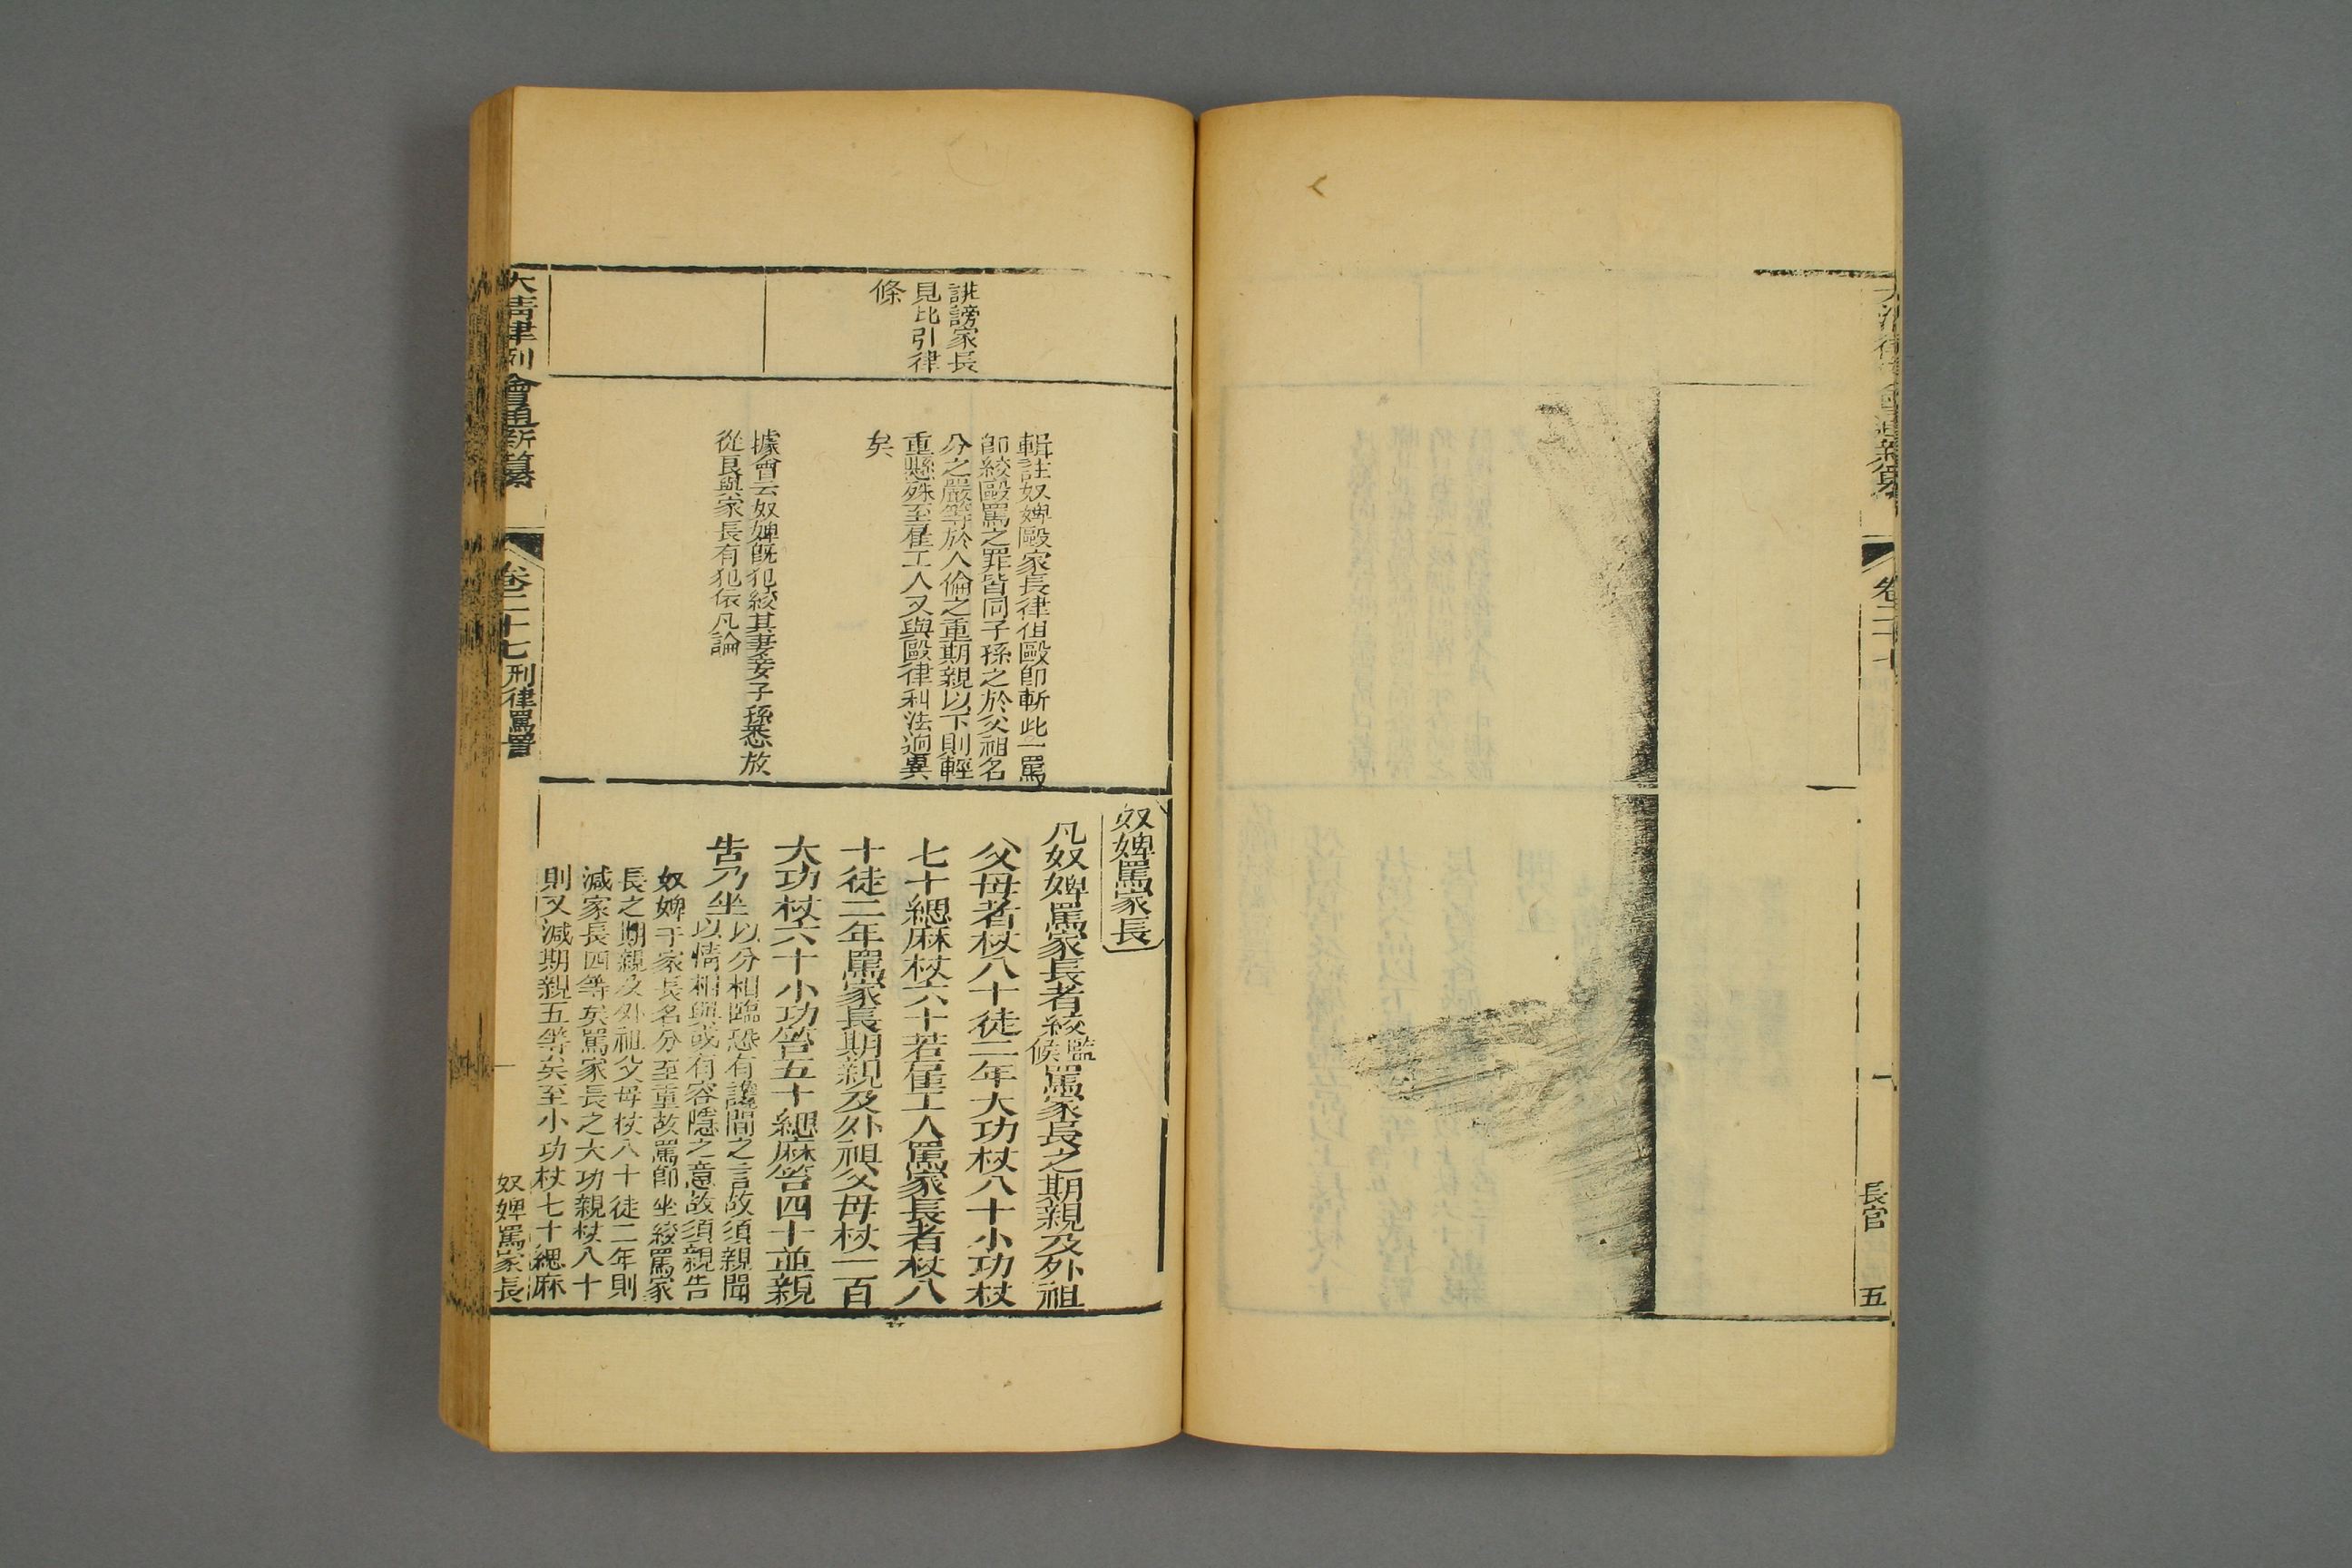 卷二十
長官
五
誹謗家長
見比引律
條
輯註奴婢毆家長律但毆卽斬此一罵
卽絞毆罵之罪皆同子孫之於父祖名
分之嚴等於人倫之重期親以下則輕
重懸殊至雇工人又與毆律科法迥異
矣
據會云奴婢旣犯絞其妻妾子孫悉放
從良與家長有犯依凡論
奴婢罵家長
凡奴婢罵家長者絞監候罵家長之期親及外祖
父母者杖八十徒二年大功杖八十小功杖
七十緦麻杖六十若雇工人罵家長者杖八
十徒二年罵家長期親及外祖父母杖一百
大功杖六十小功笞五十緦麻笞四十並親
告乃坐以分相臨恐有讒間之言故須親聞
以情相與或有容隱之意故須親告
奴婢于家長名分至重故罵卽坐絞罵家
長之期親及外祖父母杖八十徒二年則
減家長四等矣罵家長之大功親杖八十
則又減期親五等矣至小功杖七十緦麻
大清律例會通新纂
卷二十七
刑律罵詈
奴婢罵家長